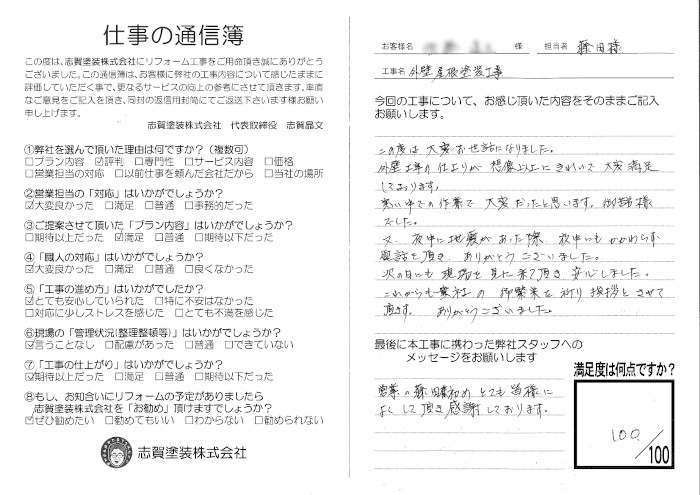 仕事の通信簿
この度は、志賀塗装株式会社にリフォーム工事をご用命頂き誠にありがとう
ございました。この通信簿は、お客様に弊社の工事内容について感じたままに
評価していただく事で、更なるサービスの向上の参考にさせて頂きます。率直
なご意見をご記入を頂き、同封の返信用封筒にてご返送下さいます様お願い
申し上げます。
志賀塗装株式会社 代表取締役 志賀晶文
①弊社を選んで頂いた理由は何ですか?(複数可)
□プラン内容 ☑評判 □専門性 □サービス内容 □価格
□営業担当の対応 □以前仕事を頼んだ会社だから □当社の場所
②営業担当の「対応」はいかがでしょうか?
☑大変良かった □満足 □普通 □事務的だった
③ご提案させて頂いた「プラン内容」はいかがでしょうか?
□期待以上だった ☑満足 □普通 □期待以下だった
④「職人の対応」はいかがでしょうか?
☑大変良かった □満足 □普通 □良くなかった
⑤「工事の進め方」はいかがでしたか?
☑とても安心していられた □特に不安はなかった
□対応に少しストレスを感じた □とても不満を感じた
⑥現場の「管理状況(整理整頓等)」はいかがでしょうか?
☑言うことなし □配慮があった □普通 □できていない
⑦「工事の仕上がり」はいかがでしょうか?
☑期待以上だった □満足 □普通 □期待以下だった
⑧もし、お知合いにリフォームの予定がありましたら
志賀塗装株式会社を「お勧め」頂けますでしょうか?
☑ぜひ勧めたい □勧めてもいい □わからない □勧められない
志賀塗装株式会社
お客様名 様 担当者 藤田様
工事名 外壁屋根塗装工事
今回の工事について、お感じ頂いた内容をそのままご記入
お願いします。
この度は大変お世話になりました。
外壁工事の仕上りが想像以上にきれいで大変満足
しております。
寒い中での作業で大変だったと思います。御苦労様
でした。
又、夜中に地震があった際、夜中にもかかわらず
電話を頂き、ありがとうございました。
次の日にも現場を見に来て頂き安心しました。
これからも貴社の御繁栄を祈り挨拶とさせて
頂きます。ありがとうございました。
最後に本工事に携わった弊社スタッフへの
メッセージをお願いします
営業の藤田様初めとても皆様に
よくして頂き感謝しております。
満足度は何点ですか?
100/100